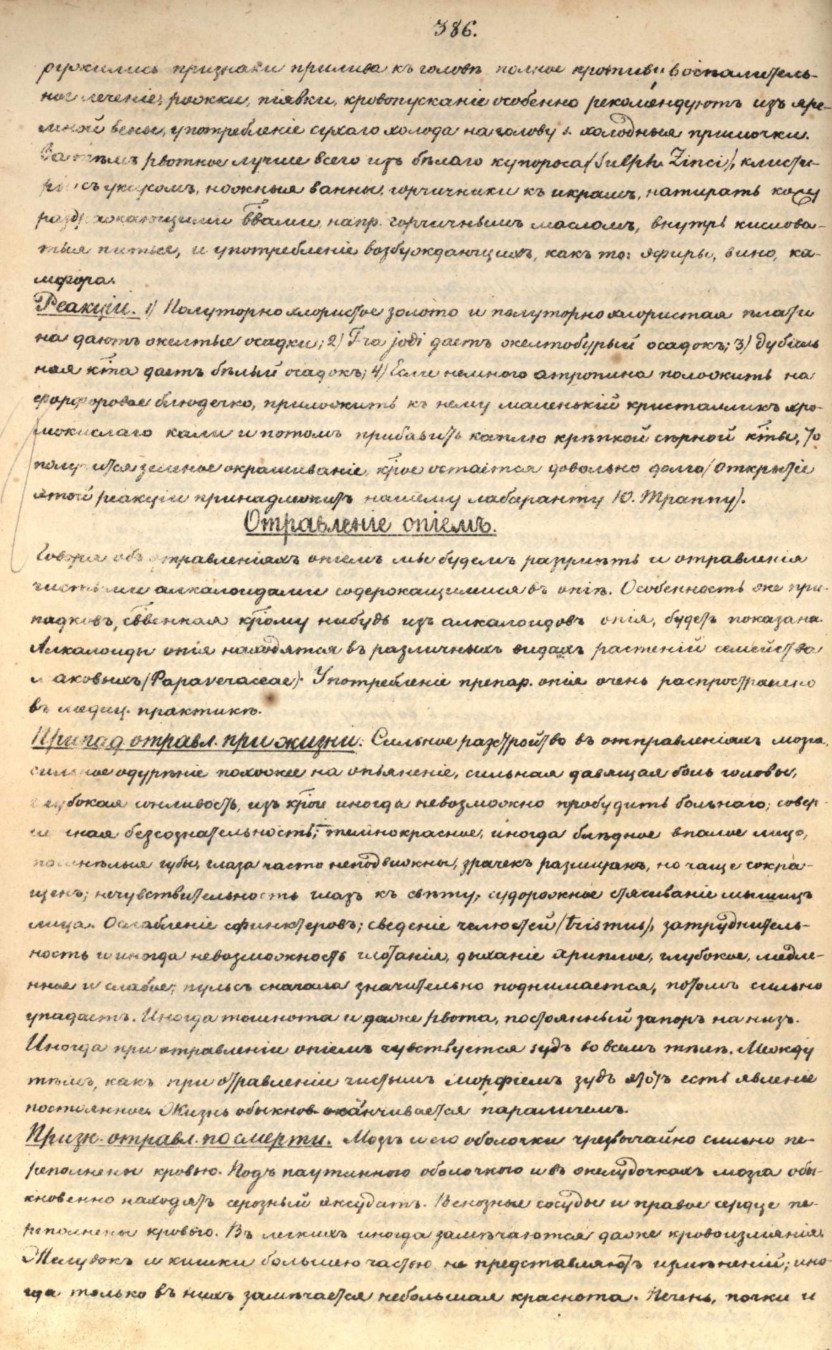 386.
ружились признаки прилива къ головѣ полное противувоспалитель-
ное лечение; рожки, піявки, кровопусканіе особенно рекомендуютъ изъ яре-
мной вены, употребленіе сухаго холода на голову s. холодныя примочки.
Затѣмъ рвотное лучше всего изъ бѣлаго купороса (Sulph. Zinci), клисти-
ры съ уксусомъ, ножныя ванны, горчичники къ икрамъ, натирать кожу
раздражающими вѣвами, напр. горчичнымъ масломъ, внутрь кислова-
тыя питья, и употребленіе возбуждающихъ, какъ то: эфиры, вино, ка-
мфора.
Реакціи. 1) Полуторнохлористое золото и полуторнохлористая плати-
на даютъ желтые осадки; 2) T-ra jodi даетъ желтобурый осадокъ; 3) Дубиль-
ная кта даетъ бѣлый осадокъ; 4) Если немного атропина положить на
фарфоровое блюдечко, приложить къ нему маленькій кристалликъ хро-
мокислаго кали и потомъ прибавить каплю крѣпкой сѣрной кты, то
получится зеленое окрашиваніе, крое остаётся довольно долго (открытіе
этой реакціи принадлежитъ нашему лаборанту Ю. Траппу).
Отравленіе опіемъ.
Говоря объ отравленіяхъ опіемъ мы будемъ разумѣть и отравленія
чистыми алкалоидами содержащимися въ опіѣ. Особенность же при-
падковъ, свенная крому нибудь изъ алкалоидовъ опія, будетъ показана.
Алкалоиды опія находятся въ различныхъ видахъ растеній семейства
маковыхъ (Papaveraceae). Употребленіе препар. опія очень распространено
въ медиц. практикѣ.
Припад отравл. при жизни. Сильное разстройство въ отправленіяхъ мозга,
сильное одурѣніе похожее на опьяненіе, сильная давящая боль головы,
глубокая сонливость, изъ крой иногда невозможно пробудить больнаго; совер-
шенная безсознательность; темнокрасное, иногда блѣдное впалое лицо,
посинѣлыя губы, глаза часто неподвижны, зрачекъ расширенъ, но чаще сокра-
щенъ; нечувствительность глазъ къ свѣту; судорожное стягиваніе мышцъ
лица. Ослабленіе сфинктеровъ; сведеніе челюстей (trismus), затруднитель-
ность и иногда невозможность глотанія, дыханіе хриплое, глубокое, медле-
нное и слабое; пульсъ сначала значительно поднимается, потомъ сильно
упадаетъ. Иногда тошнота и даже рвота, постоянный запоръ на низъ.
Иногда при отравленіи опіемъ чувствуется зудъ во всемъ тѣлѣ. Между
тѣмъ, какъ при отравленіи чистымъ морфіемъ зудъ этотъ есть явленіе
постоянное. Жизнь обыкнов. оканчивается параличемъ.
Призн. отравл. по смерти. Мозгъ и его оболочки чрезвычайно сильно пе-
реполнены кровью. Подъ паутинною оболочкою и въ желудочкахъ мозга обы-
кновенно находятъ серозный эксудатъ. Венозные сосуды и правое сердце пе-
реполнены кровью. Въ легкихъ иногда замѣчаются даже кровоизліянія.
Желудокъ и кишки большею частью не представляютъ измѣненій; ино-
гда только въ нихъ замѣчается небольшая краснота. Печень, почки и